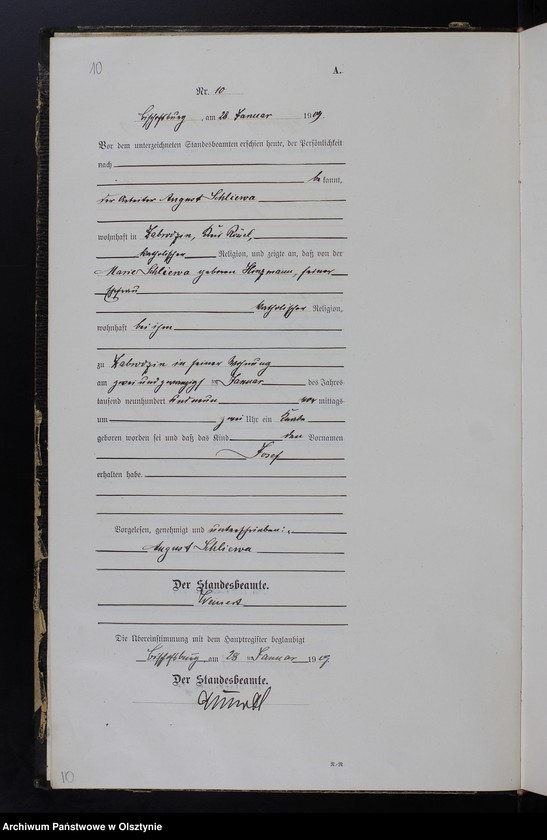 10
A.
Nr. 10
Bischofsburg, am 28. Januar 1909.
Vor dem unterzeichneten Standesbeamten erschien heute, der Persönlichkeit
nach
bekannt,
der Arbeiter August Schliewa
wohnhaft in Zabrodzin, Kreis Rössel,
katholischer Religion, und zeigte an, daß von der
Marie Schliewa geborenen, seiner
Ehefrau
katholischer Religion,
wohnhaft bei ihm
zu Zabrodzin in seiner Wohnung
am zweiundzwanzigsten Januar des Jahres
tausend neunhundert und neun vor mittags
um zwei Uhr ein Knabe
geboren worden sei und daß das Kind den Vornamen
Josef
erhalten habe.
Vorgelesen, genehmigt und unterschrieben:
August Schliewa
Der Standesbeamte.
Die Übereinstimmung mit dem Hauptregister beglaubigt
Bischofsburg, am 28 Januar 1909.
Der Standesbeamte.
R.-R.
10
Archiwum Państwowe w Olsztynie